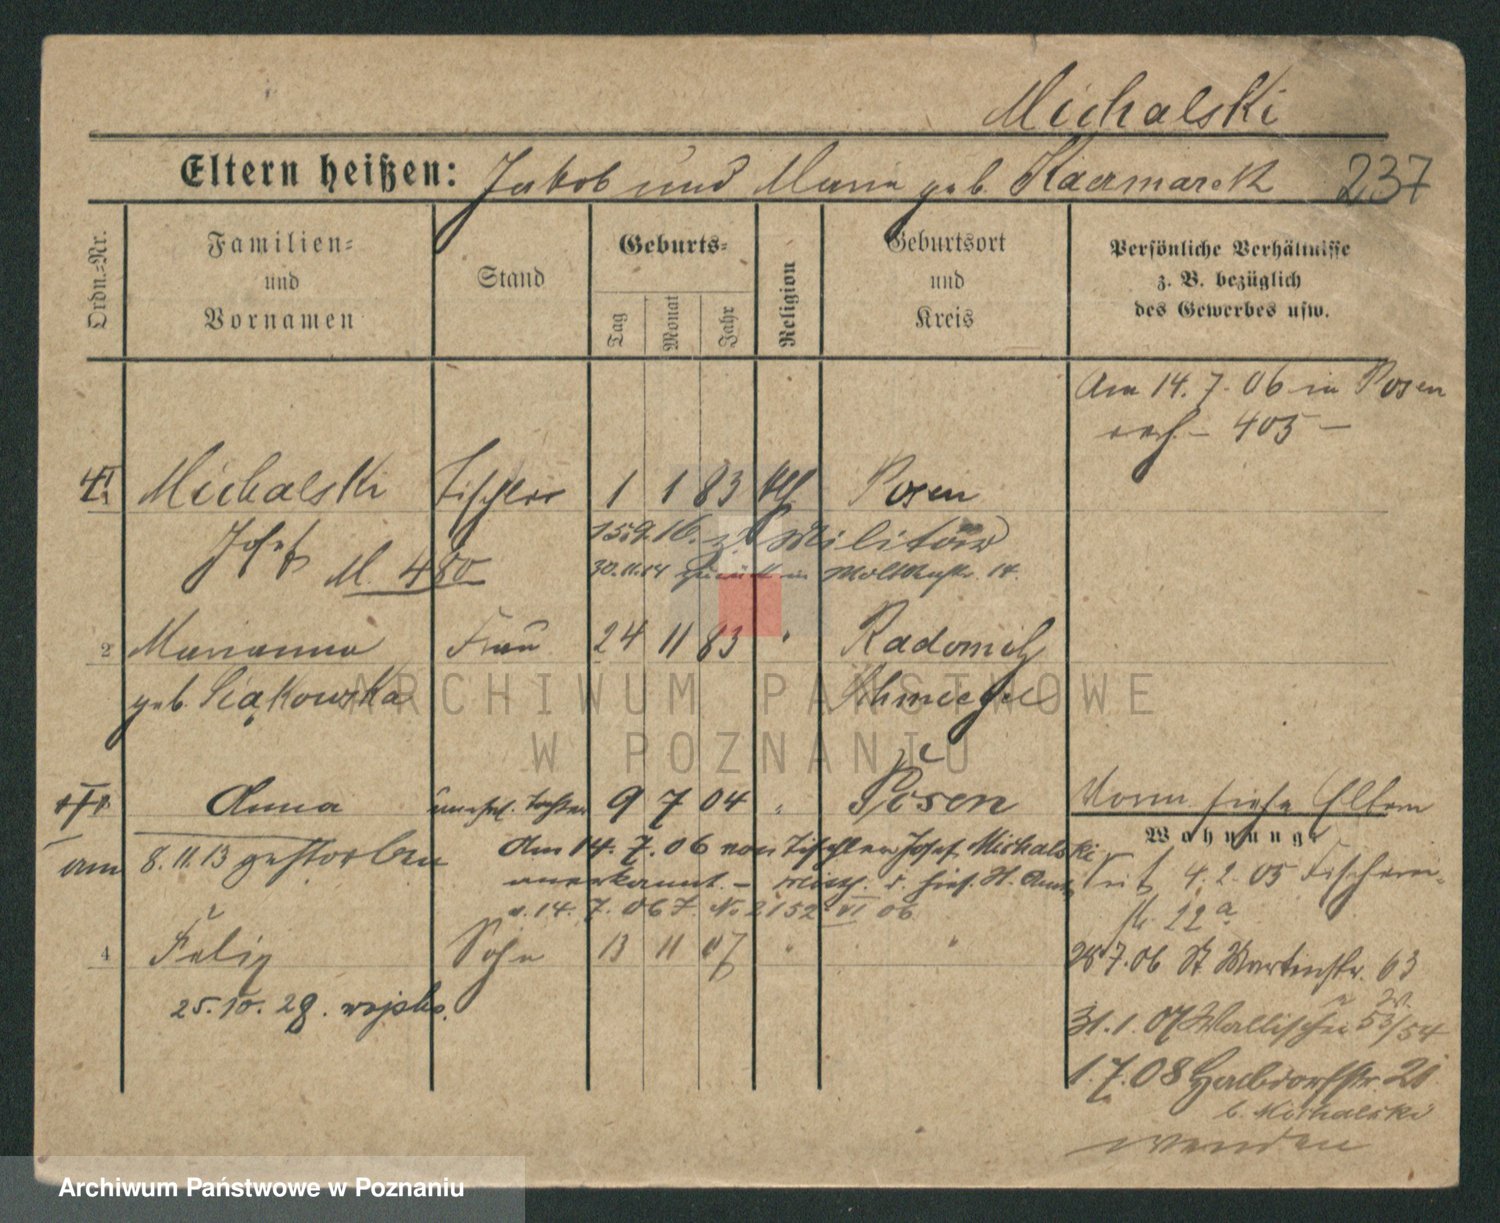 Michalski
Eltern heißen: Jakob und Maria geb. Kaczmarek 237
Ordn.=Nr.
Familien=
und
Vornamen
Stand
Geburts=
Tag
Monat
Jahr
Religion
Geburtsort
und
Kreis
Persönliche Verhältnisse
z. B. bezüglich
des Gewerbes usw.
Am 14. 7. 06 in Posen
– 405 –
Michalski Tischler 1 1 83 kth Posen
Josef M. 480
15.9.16. z. Militär
30.11.14 zurück in Moltkestr. 14.
2 Marianna Frau 24 11 83 " Radomitz
geb. Siąkowska Schmiegel
Anna unehel. Tochter 9 7 04 " Posen
am 8.11.13 gestorben
Am 14. 7. 06 von Tischler Josef Michalski
anerkannt. –
v. 14. 7. 06 J. No 2152 VI 06
4 Felix Sohn 13 11 07 " "
25.10.28. wojsko.
Vorm siehe Eltern
Wohnung:
Seit 4. 2. 05 Fischerei=
str 22a
28.7.06 St Martinstr. 63
31.1.07 Wallischei 53/54
1.7.08 Halbdorfstr. 21
b. Michalski
wenden
ARCHIWUM PAŃSTWOWE
W POZNANIU
Archiwum Państwowe w Poznaniu